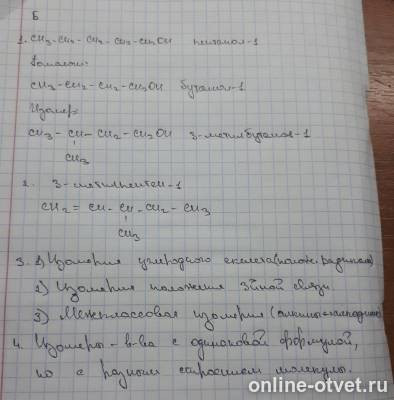 Б
1. CH3-CH2-CH2-CH2-CH2OH пентанол-1
Гомолог:
CH3-CH2-CH2-CH2OH бутанол-1
Изомер:
CH3-CH-CH2-CH2OH 3-метилбутанол-1
CH3
2. 3-метилпентен-1
CH2=CH-CH-CH2-CH3
CH3
3. 1) Изомерия углеродного скелета
2) Изомерия положения связи
3) Межклассовая изомерия (алкины-алкадиены)
4. Изомеры - в-ва с одинаковой формулой,
но с разным строением молекулы.
online-otvet.ru